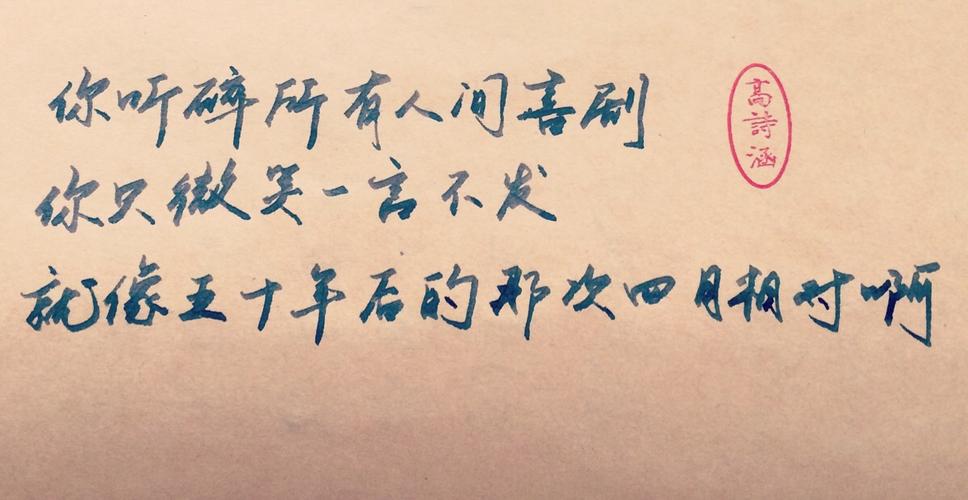 你听碎所有人间喜剧
你只微笑一言不发
就像五十年后的那次四月相对啊
高詩涵